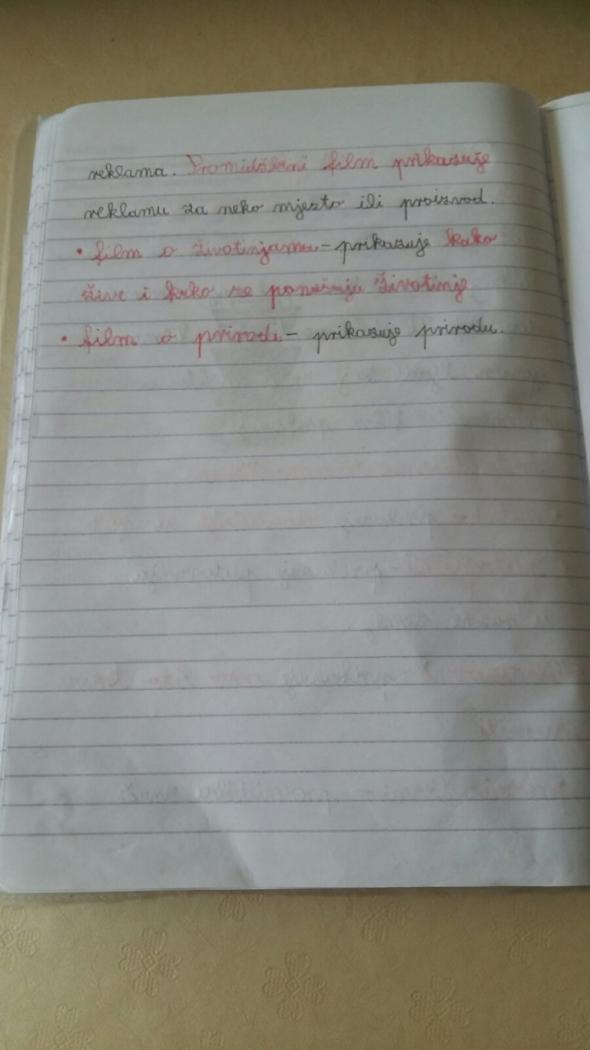 reklama. Promidžbeni film prikazuje
reklamu za neko mjesto ili proizvod.
• film o životinjama - prikazuje kako
žive i kako se ponašaju životinje
• film o prirodi - prikazuje prirodu.